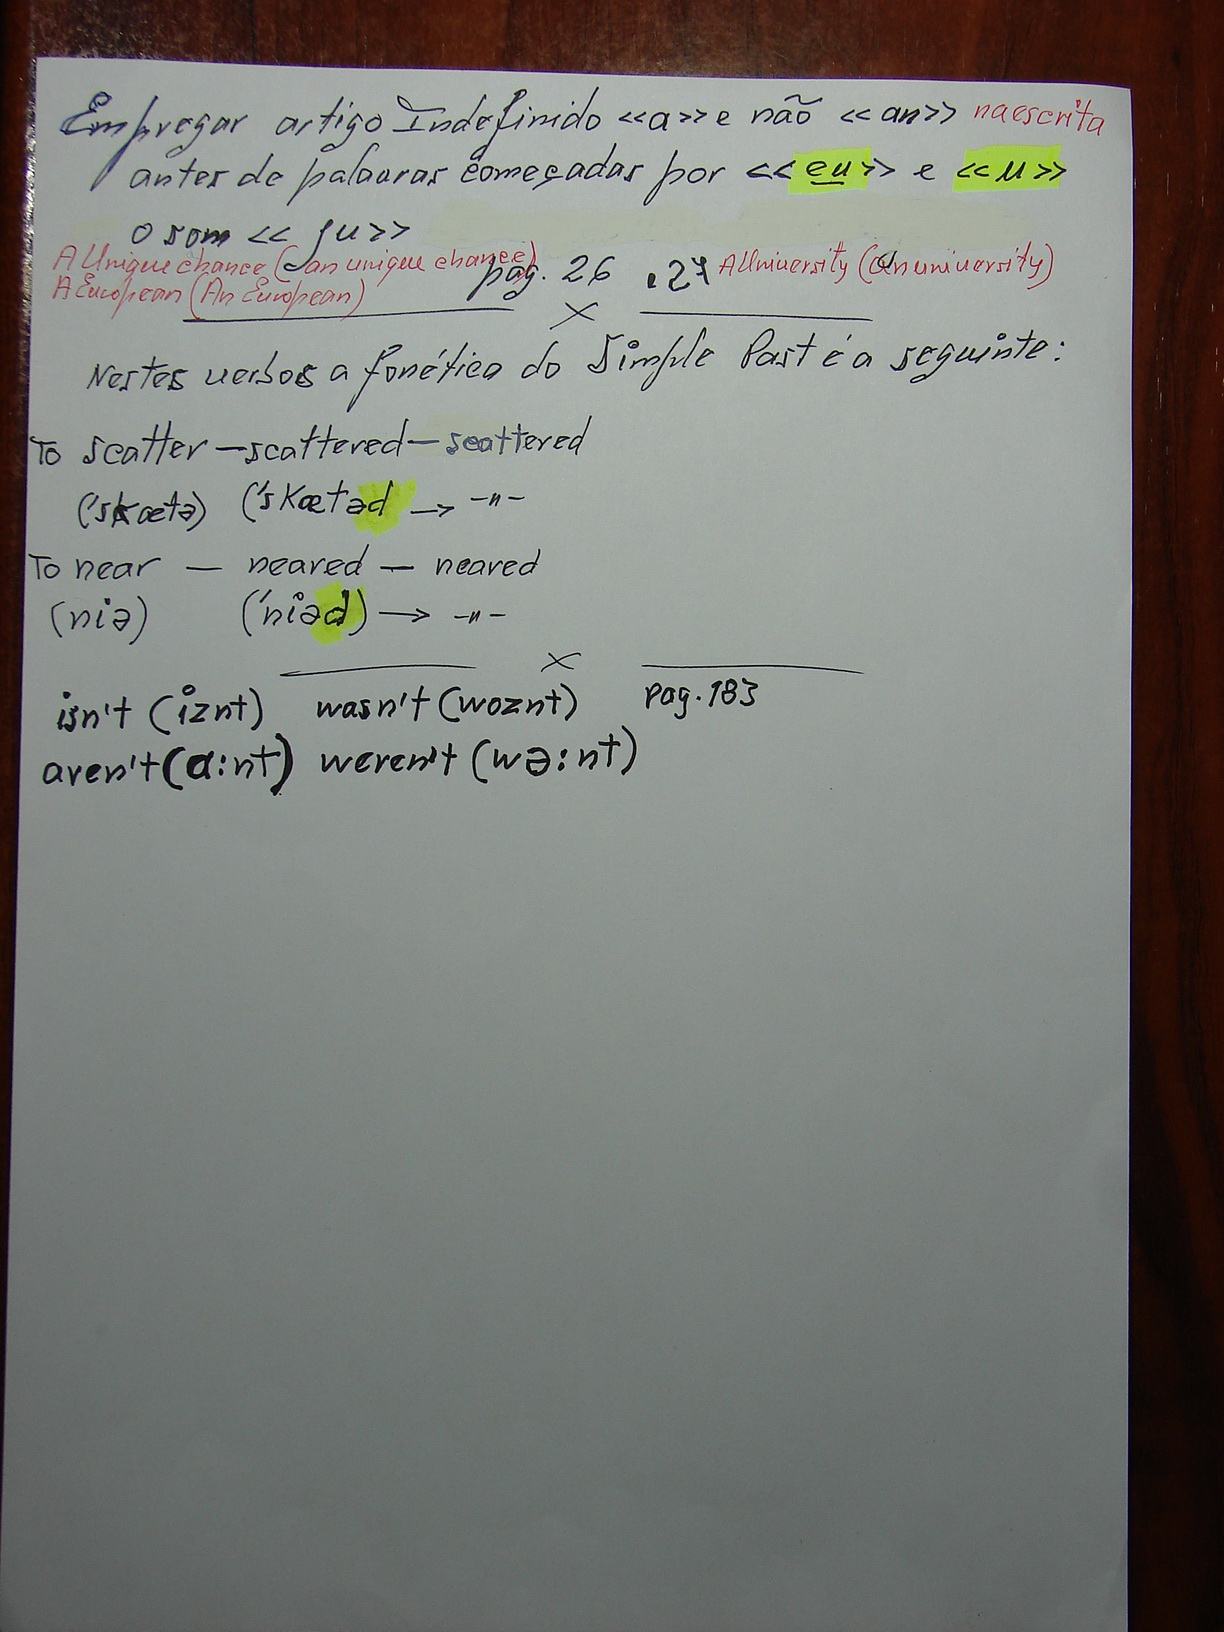 Empregar artigo Indefinido <<a>> e não <<an>> na escrita
antes de palavras começadas por <<eu>> e <<u>>
o som << ju>>
A Unique chance (an unique chance) pag. 26 . 27 A University (an university)
A European (An European)
x
Nestes verbos a fonética do Simple Past é a seguinte:
To scatter - scattered - scattered
('skætə) ('skætəd → -"-
To near - neared - neared
(niə) ('niəd) → -"-
x
isn't (iznt) wasn't (woznt) pag. 183
aren't (ɑ:nt) weren't (wə:nt)